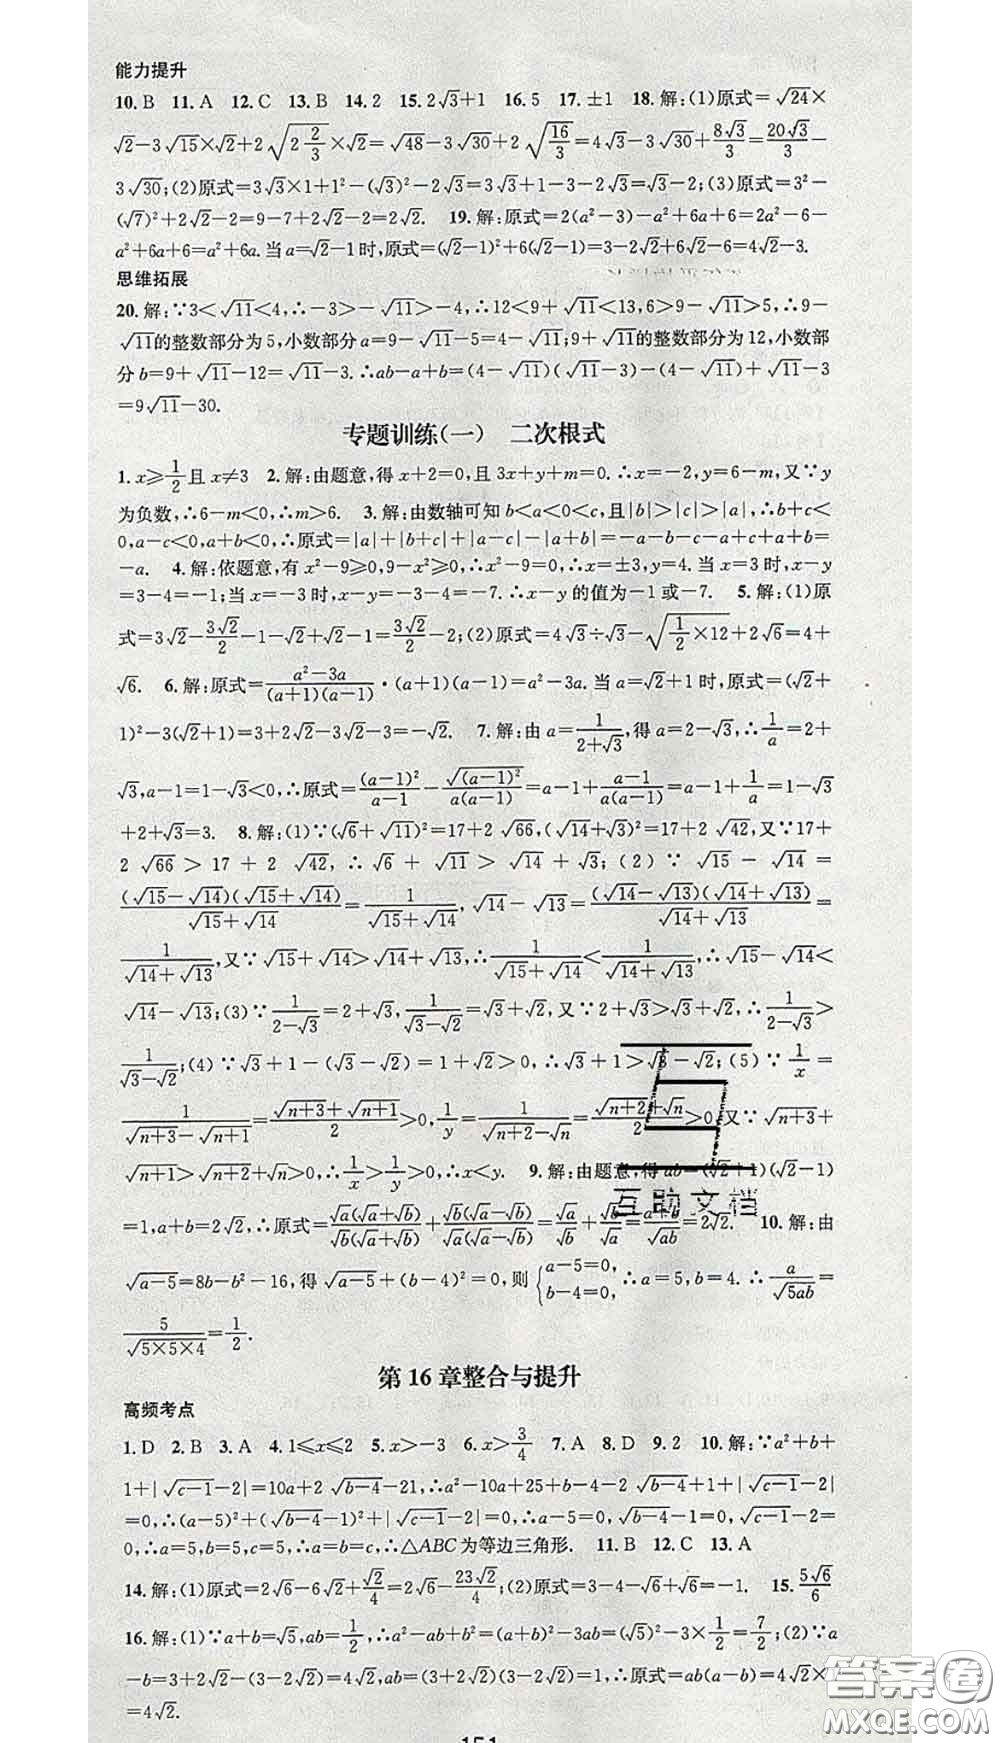 能力提升
10. B 11. A 12. C 13. B 14. 2 15. 2√3+1 16. 5 17. ±1 18. 解:(1)原式=√24×
√2-3√15×√2+2√(2 2/3)×√2=√48-3√30+2√(16/3)=4√3-3√30+8√3/3=20√3/3-
3√30;(2)原式=3√3×1+1²-(√3)²-2√3=3√3+1-3-2√3=√3-2;(3)原式=3²-
(√7)²+2√2-2=9-7+2√2-2=2√2. 19. 解:原式=2(a²-3)-a²+6a+6=2a²-6-
a²+6a+6=a²+6a.当a=√2-1时,原式=(√2-1)²+6(√2-1)=3-2√2+6√2-6=4√2-3.
思维拓展
20. 解:∵3<√11<4,∴-3>-√11>-4,∴12<9+√11<13,6>9-√11>5,∴9-
√11的整数部分为5,小数部分a=9-√11-5=4-√11;9+√11的整数部分为12,小数部
分b=9+√11-12=√11-3.∴ab-a+b=(4-√11)(√11-3)-(4-√11)+√11-3
=9√11-30.
专题训练(一) 二次根式
1. x≥1/2且x≠3 2. 解:由题意,得x+2=0,且3x+y+m=0.∴x=-2,y=6-m,又∵y
为负数,∴6-m<0,∴m>6. 3. 解:由数轴可知b<a<0<c,且|b|>|c|>|a|,∴b+c<
0,a-c<0,a+b<0,∴原式=|a|+|b+c|+|a-c|-|a+b|=-a-b-c-a+c+a+b=
-a. 4. 解:依题意,有x²-9≥0,9-x²≥0,∴x²-9=0,∴x=±3,y=4.当x=3时,x-y
=3-4=-1;当x=-3时,x-y=-3-4=-7.∴x-y的值为-1或-7. 5. 解:(1)原
式=3√2-3√2/2-1-√2+√2-1=3√2/2-2;(2)原式=4√3÷√3-√(1/2×12)+2√6=4+
√6. 6. 解:原式=(a²-3a)/((a+1)(a-1))·(a+1)(a-1)=a²-3a.当a=√2+1时,原式=(√2+
1)²-3(√2+1)=3+2√2-3√2-3=-√2. 7. 解:由a=1/(2+√3),得a=2-√3,∴1/a=2+
√3,a-1=1-√3<0,∴原式=(a-1)²/(a-1)-√(a-1)²/(a(a-1))=a-1+(a-1)/(a(a-1))=a-1+1/a=1-√3
+2+√3=3. 8. 解:(1)∵(√6+√11)²=17+2√66,(√14+√3)²=17+2√42,又∵17+
2√66>17+2√42,∴√6+√11>√14+√3;(2)∵√15-√14=
(√15-√14)(√15+√14)/(√15+√14)=1/(√15+√14),√14-√13=(√14-√13)(√14+√13)/(√14+√13)=
1/(√14+√13),又∵√15+√14>√14+√13,∴1/(√15+√14)<1/(√14+√13),∴√15-√14<
√14-√13;(3)∵1/(2-√3)=2+√3,1/(√3-√2)=√3+√2,又∵2+√3>√3+√2,∴1/(2-√3)>
1/(√3-√2);(4)∵√3+1-(√3-√2)=1+√2>0,∴√3+1>√3-√2;(5)∵1/x=
1/(√(n+3)-√(n+1))=(√(n+3)+√(n+1))/2>0,1/y=1/(√(n+2)-√n)=(√(n+2)+√n)/2>0,又∵√(n+3)+
√(n+1)>√(n+2)+√n>0,∴1/x>1/y,∴x<y. 9. 解:由题意,得ab=(√2+1)(√2-1)
=1,a+b=2√2,∴原式=√a(√a+√b)/(√b(√a+√b))+√b(√a-√b)/(√a(√a-√b))=√a/√b+√b/√a=(a+b)/√ab=2√2. 10. 解:由
√(a-5)=8b-b²-16,得√(a-5)+(b-4)²=0,则{a-5=0, b-4=0,∴a=5,b=4.∴a/√5ab=
5/√(5×5×4)=1/2.
第16章整合与提升
高频考点
1. D 2. B 3. A 4. 1≤x≤2 5. x>-3 6. x>3/4 7. A 8. D 9. 2 10. 解:∵a²+b+
1+|√(c-1)-2|=10a+2√(b-4)-21,∴a²-10a+25+b-4-2√(b-4)+1+|√(c-1)-2|
=0,∴(a-5)²+(√(b-4)-1)²+|√(c-1)-2|=0,∴a-5=0,√(b-4)-1=0,√(c-1)-2=
0,∴a=5,b=5,c=5,∴a=b=c,∴△ABC为等边三角形. 11. B 12. C 13. A
14. 解:(1)原式=2√6-6√2+√2/4=2√6-23√2/4;(2)原式=3-4-√6+√6=-1. 15. 5√6/6
16. 解:(1)∵a+b=√5,ab=1/2,∴a²-ab+b²=(a+b)²-3ab=(√5)²-3×1/2=7/2;(2)∵a
-b=3+2√2-(3-2√2)=4√2,ab=(3+2√2)(3-2√2)=1,∴原式=ab(a-b)=4√2×1
=4√2.
151
互助文档
答案圈
MXQE.COM